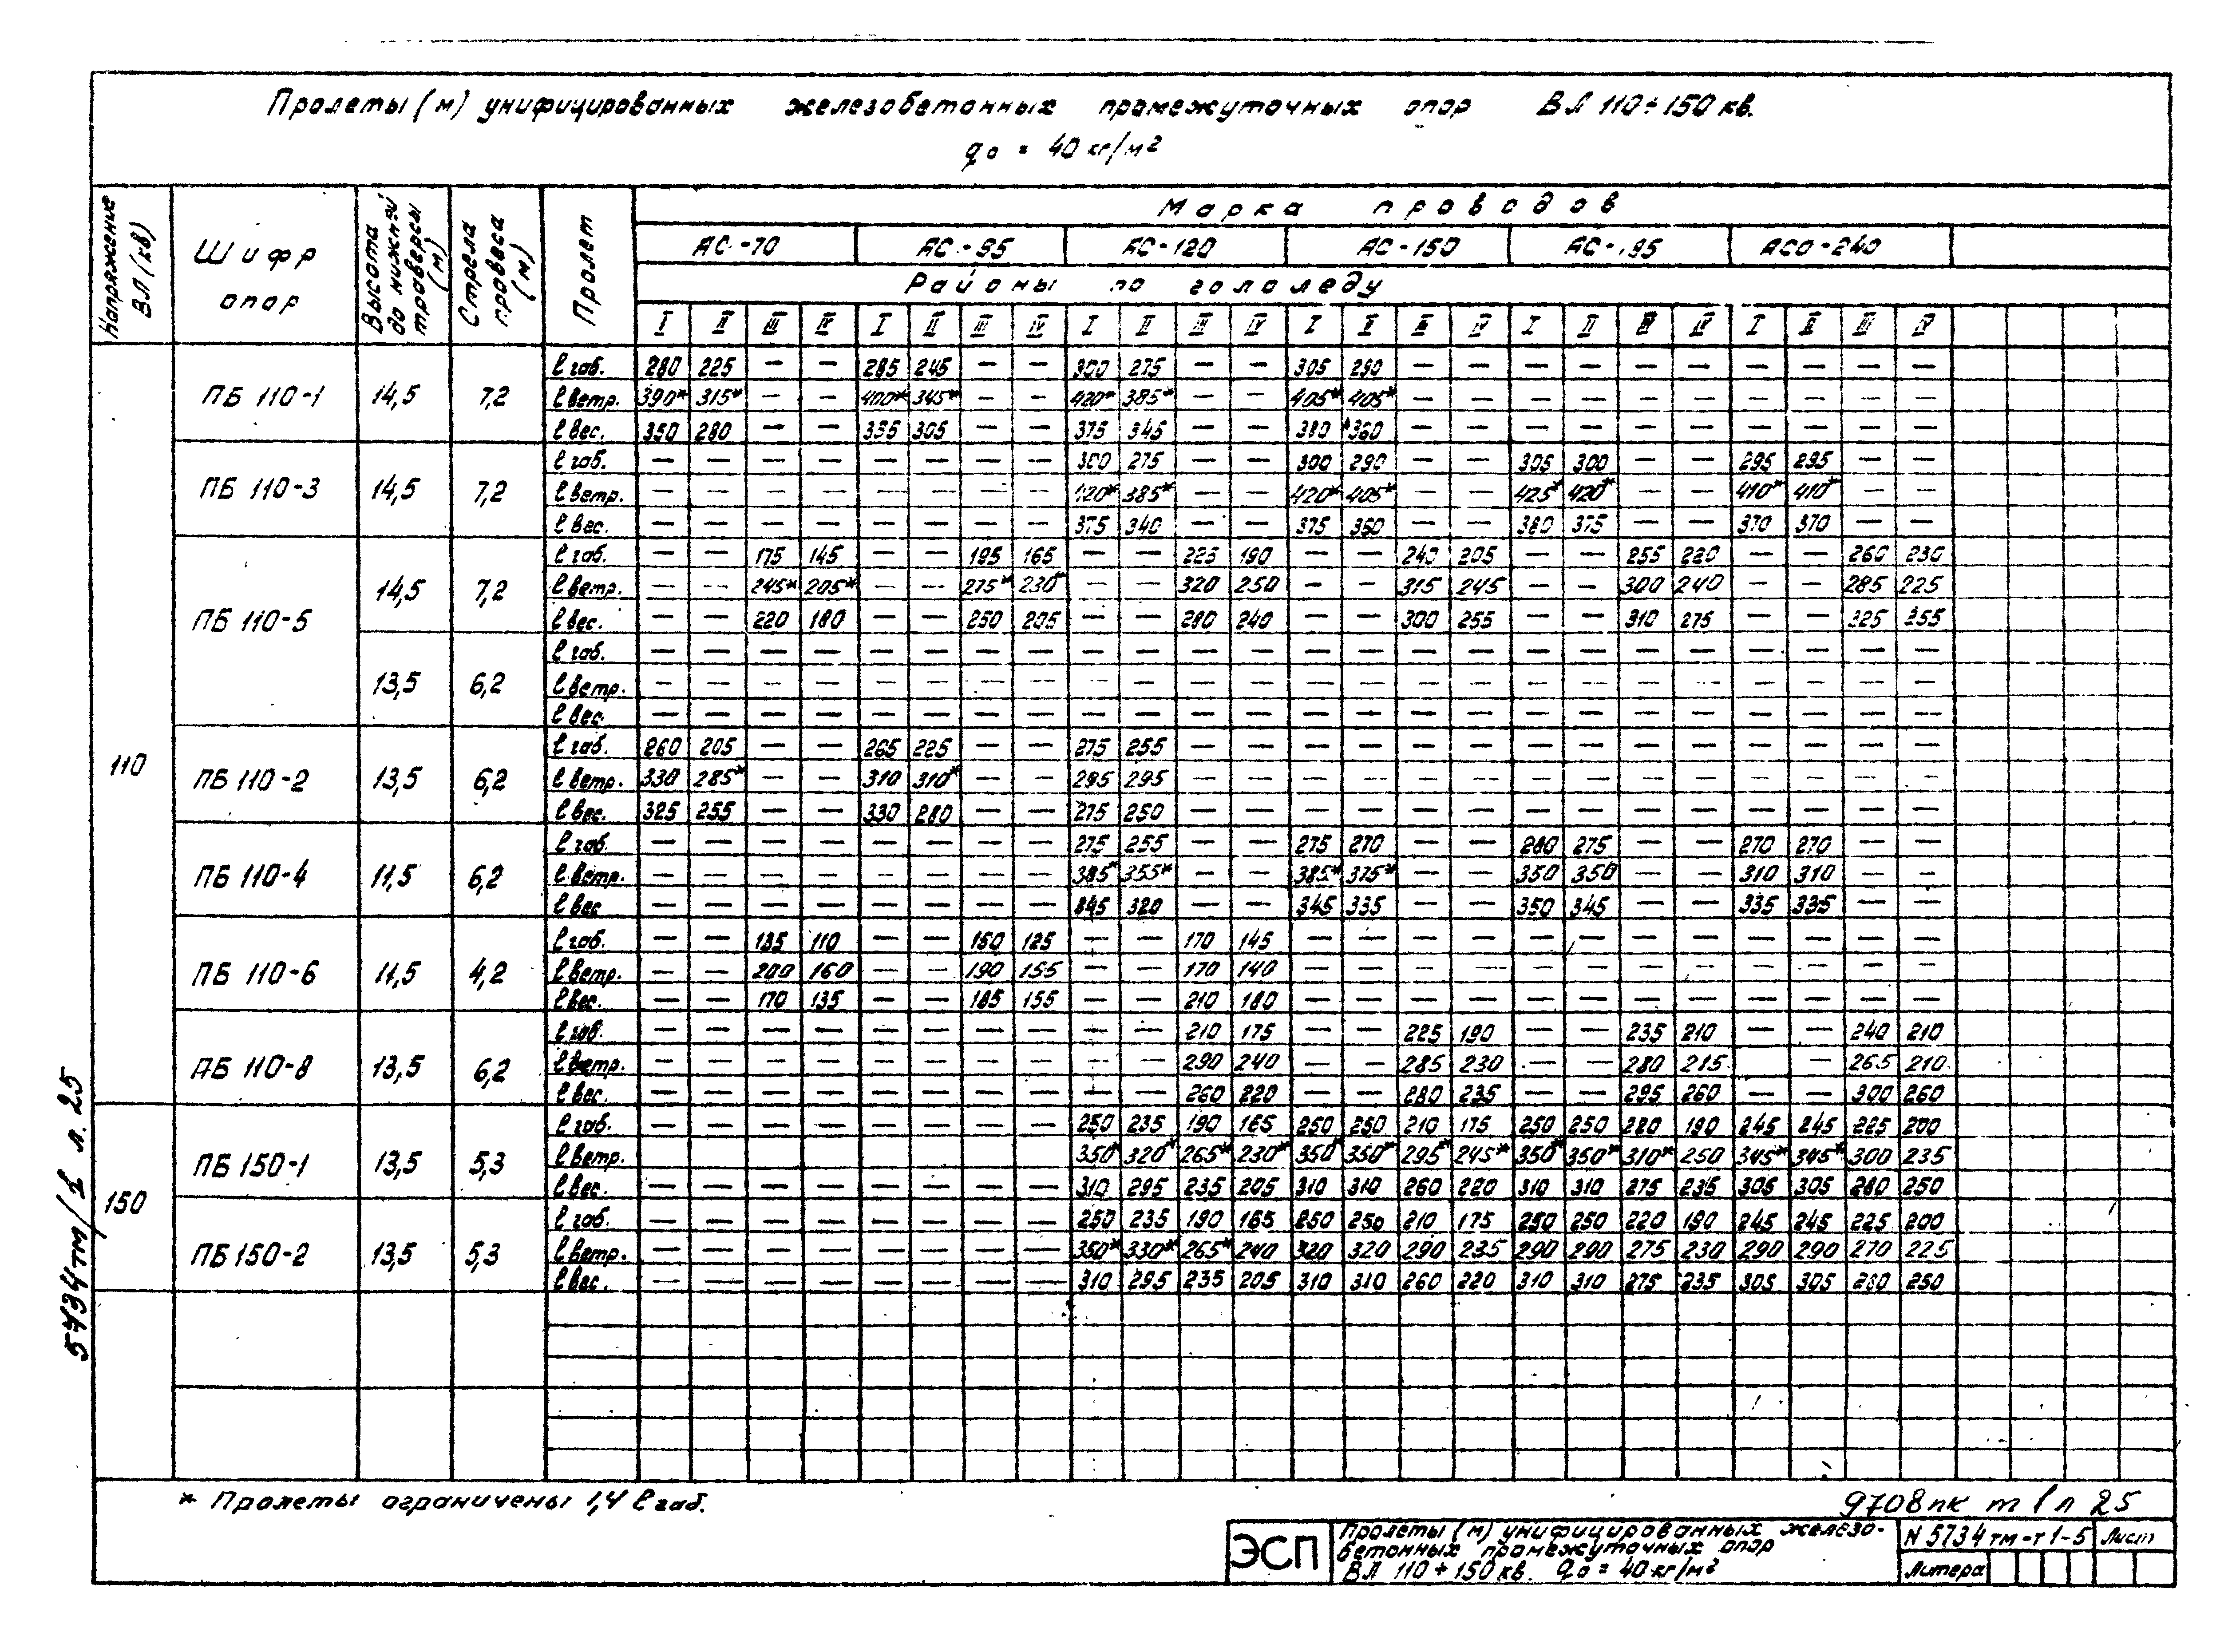 Пролеты (м) унифицированных железобетонных промежуточных опор ВЛ 110÷150 кв.
q₀ = 40 кг/м²
Напряжение ВЛ (кв)
Шифр опор
Высота до нижней траверсы (м)
Стрела провеса (м)
Пролет
Марка проводов
АС-70 АС-95 АС-120 АС-150 АС- АСО-240
Районы по гололеду
I II III IV I II III IV I II III IV I II III IV I II III IV I II III IV
110
ПБ 110-1 14,5 7,2
l габ. 280 225 — — 285 245 — — 300 275 — — 305 290 — — — — — — — — — —
l ветр. 390* 315* — — 400* 345* — — 420* 385* — — 405* 405* — — — — — — — — — —
l вес. 350 280 — — 355 305 — — 375 345 — — 380 360 — — — — — — — — — —
ПБ 110-3 14,5 7,2
l габ. — — — — — — — — 300 275 — — 300 290 — — 305 300 — — 295 295 — —
l ветр. — — — — — — — — 420* 385* — — 420* 405* — — 425* 420* — — 410* 410* — —
l вес. — — — — — — — — 375 340 — — 375 360 — — 380 375 — — 370 370 — —
ПБ 110-5 14,5 7,2
l габ. — — 175 145 — — 195 165 — — 225 190 — — 240 205 — — 255 220 — — 260 230
l ветр. — — 245* 205* — — 275* 230* — — 320 250 — — 315 245 — — 300 240 — — 285 225
l вес. — — 220 180 — — 250 205 — — 280 240 — — 300 255 — — 310 275 — — 325 255
13,5 6,2
l габ. — — — — — — — — — — — — — — — — — — — — — — — —
l ветр. — — — — — — — — — — — — — — — — — — — — — — — —
l вес. — — — — — — — — — — — — — — — — — — — — — — — —
ПБ 110-2 13,5 6,2
l габ. 260 205 — — 265 225 — — 275 255 — — — — — — — — — — — — — —
l ветр. 330 285* — — 310 310* — — 295 295 — — — — — — — — — — — — — —
l вес. 325 255 — — 330 280 — — 275 250 — — — — — — — — — — — — — —
ПБ 110-4 11,5 6,2
l габ. — — — — — — — — 275 255 — — 275 270 — — 280 275 — — 270 270 — —
l ветр. — — — — — — — — 385* 355* — — 385* 375* — — 350 350 — — 310 310 — —
l вес — — — — — — — — 345 320 — — 345 335 — — 350 345 — — 335 335 — —
ПБ 110-6 11,5 4,2
l габ. — — 135 110 — — 150 125 — — 170 145 — — — — — — — — — — — —
l ветр. — — 200 160 — — 190 155 — — 170 140 — — — — — — — — — — — —
l вес. — — 170 135 — — 185 155 — — 210 180 — — — — — — — — — — — —
ПБ 110-8 13,5 6,2
l габ. — — — — — — — — — — 210 175 — — 225 190 — — 235 210 — — 240 210
l ветр. — — — — — — — — — — 290 240 — — 285 230 — — 280 215 — 265 210
l вес. — — — — — — — — — — 260 220 — — 280 235 — — 295 260 — — 300 260
150
ПБ 150-1 13,5 5,3
l габ. — — — — — — — — 250 235 190 165 250 250 210 175 250 250 280 190 245 245 225 200
l ветр. — — — — — — — — 350* 320* 265* 230* 350* 350* 295* 245* 350* 350* 310* 250 345* 345* 300 235
l вес. — — — — — — — — 310 295 235 205 310 310 260 220 310 310 275 235 305 305 280 250
ПБ 150-2 13,5 5,3
l габ. — — — — — — — — 250 235 190 165 250 250 210 175 250 250 220 190 245 245 225 200
l ветр. — — — — — — — — 350* 330* 265* 240 320 320 290 235 290 290 275 230 290 290 270 225
l вес. — — — — — — — — 310 295 235 205 310 310 260 220 310 310 275 235 305 305 280 250
* Пролеты ограничены 1,4 l габ.
9708пк т 1 л 25
ЭСП
Пролеты (м) унифицированных железо-
бетонных промежуточных опор
ВЛ 110÷150 кв. q₀ = 40 кг/м²
N 5734 тм-т 1-5 Лист
Литера
л. 25